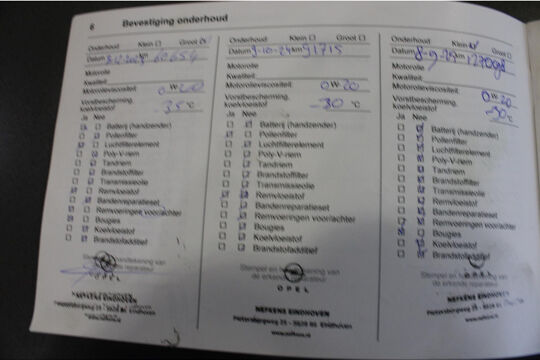 6 Bevestiging onderhoud
Onderhoud: Klein Groot
Datum km
Motorolie
Kwaliteit:
Motorolieviscositeit: 0W-20
Vorstbescherming,
koelvloeistof -35 °C
Ja Nee
Batterij (handzender)
Pollenfilter
Luchtfilterelement
Poly-V-riem
Tandriem
Brandstoffilter
Transmissieolie
Remvloeistof
Bandenreparatieset
Remvoeringen voor/achter
Bougies
Koelvloeistof
Brandstofadditief
OPEL
NEFKENS EINDHOVEN
Onderhoud: Klein Groot
Datum 3-10-24 km 91715
Motorolie
Kwaliteit:
Motorolieviscositeit: 0W-20
Vorstbescherming,
koelvloeistof -30 °C
Ja Nee
Batterij (handzender)
Pollenfilter
Luchtfilterelement
Poly-V-riem
Tandriem
Brandstoffilter
Transmissieolie
Remvloeistof
Bandenreparatieset
Remvoeringen voor/achter
Bougies
Koelvloeistof
Brandstofadditief
Stempel en handtekening van
de erkende reparateur
OPEL
NEFKENS EINDHOVEN
Onderhoud: Klein Groot
Datum 8-9-25 km
Motorolie
Kwaliteit:
Motorolieviscositeit: 0W-20
Vorstbescherming,
koelvloeistof -30 °C
Ja Nee
Batterij (handzender)
Pollenfilter
Luchtfilterelement
Poly-V-riem
Tandriem
Brandstoffilter
Transmissieolie
Remvloeistof
Bandenreparatieset
Remvoeringen voor/achter
Bougies
Koelvloeistof
Brandstofadditief
Stempel en handtekening van
de erkende reparateur
OPEL
NEFKENS EINDHOVEN